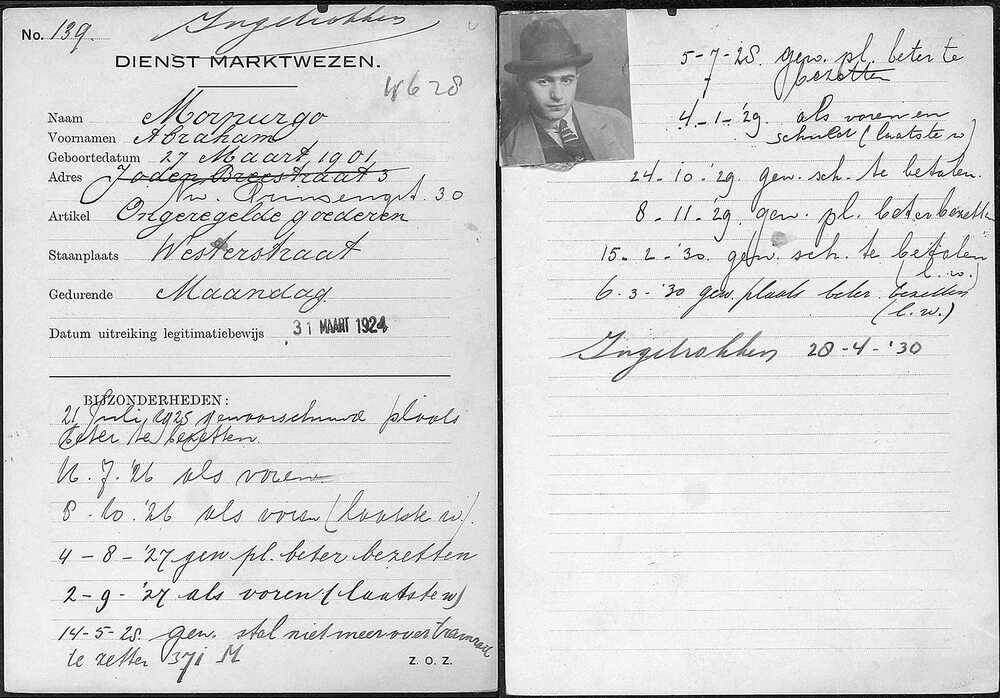 No. 139. Ingetrokken
DIENST MARKTWEZEN.
4628
Naam Morpurgo
Voornamen Abraham
Geboortedatum 27 Maart 1901
Adres Joden Breestraat 3
Nw. Prinsengrt. 30
Artikel Ongeregelde goederen
Staanplaats Westerstraat
Gedurende Maandag
Datum uitreiking legitimatiebewijs 31 MAART 1924
BIJZONDERHEDEN:
21 Juli 1925 gewaarschuwd plaats
beter te bezetten.
7. '26 als voren
8-10.'26 als voren (laatste w).
4-8-'27 gew pl. beter bezetten
2-9-'27 als voren (laatste w)
14-5-28. gew. stal niet meer over tramrail
te zetten 371 M
Z. O. Z.
5-7-28. gew. pl. beter te
bezetten
4-1-'29. als voren en
schuld (laatste w)
24-10-'29. gew. sch. te betalen.
8-11-'29 gew. pl. beter bezetten
15-2-'30. gew. sch. te betalen
(l.w.)
6-3-'30 gew. plaats beter bezetten
(l.w.)
Ingetrokken 28-4-'30